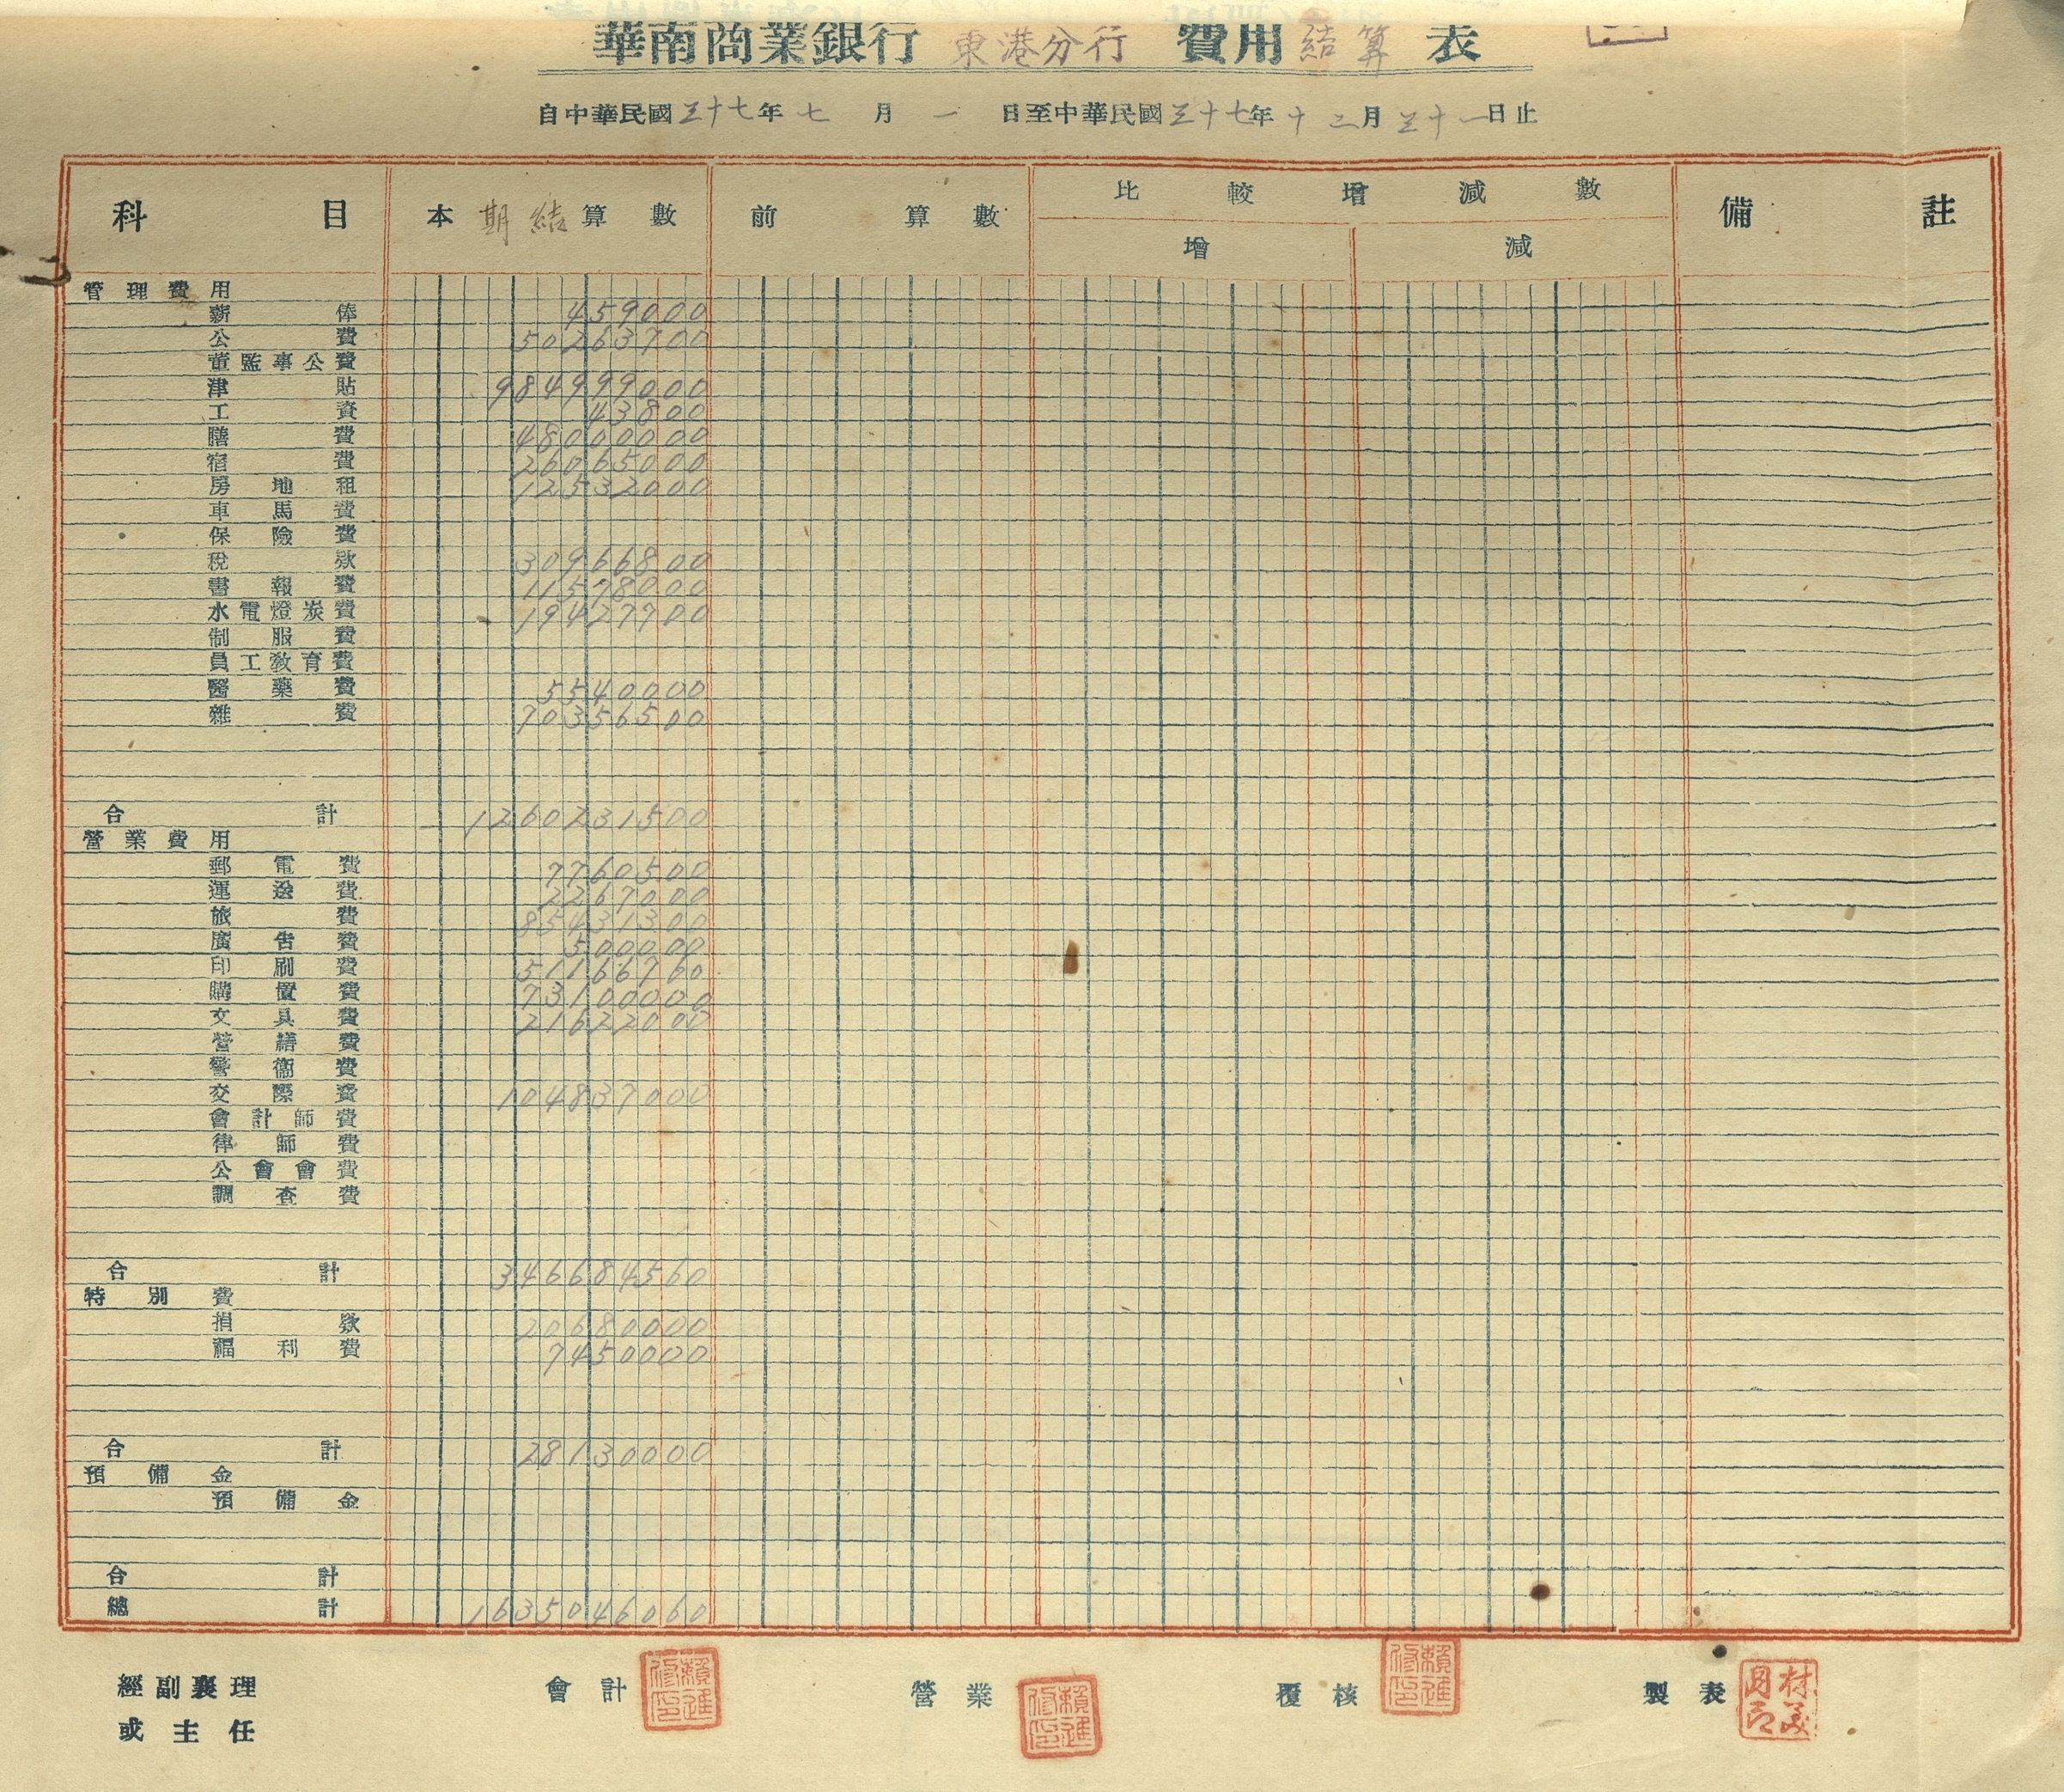 華南商業銀行 東港分行 費用結算表
自中華民國三十七年七月一日至中華民國三十七年十二月三十一日止
科目 本期結算數 前 算數 比較增減數 備註
增 減
管理費用
薪俸 459000
公費 50263700
董監事公費
津貼 984999000
工資 43800
膳費 48000000
宿費 26065000
房地租 12532000
車馬費
保險費
稅款 30966800
書報費 11578000
水電燈炭費 19427700
制服費
員工教育費
醫藥費 5540000
雜費 70356500
合計 1260231500
營業費用
郵電費 7760500
運送費 2267000
旅費 85431300
廣告費 500000
印刷費 51166760
購置費 73100000
文具費 21622000
營繕費
警衛費
交際費 104837000
會計師費
律師費
公會會費
調查費
合計 346684560
特別費
捐款 20680000
福利費 7450000
合計 28130000
預備金
預備金
合計
總計 1635046060
經副襄理或主任 會計 賴進修印 營業 賴進修印 覆核 賴進修印 製表